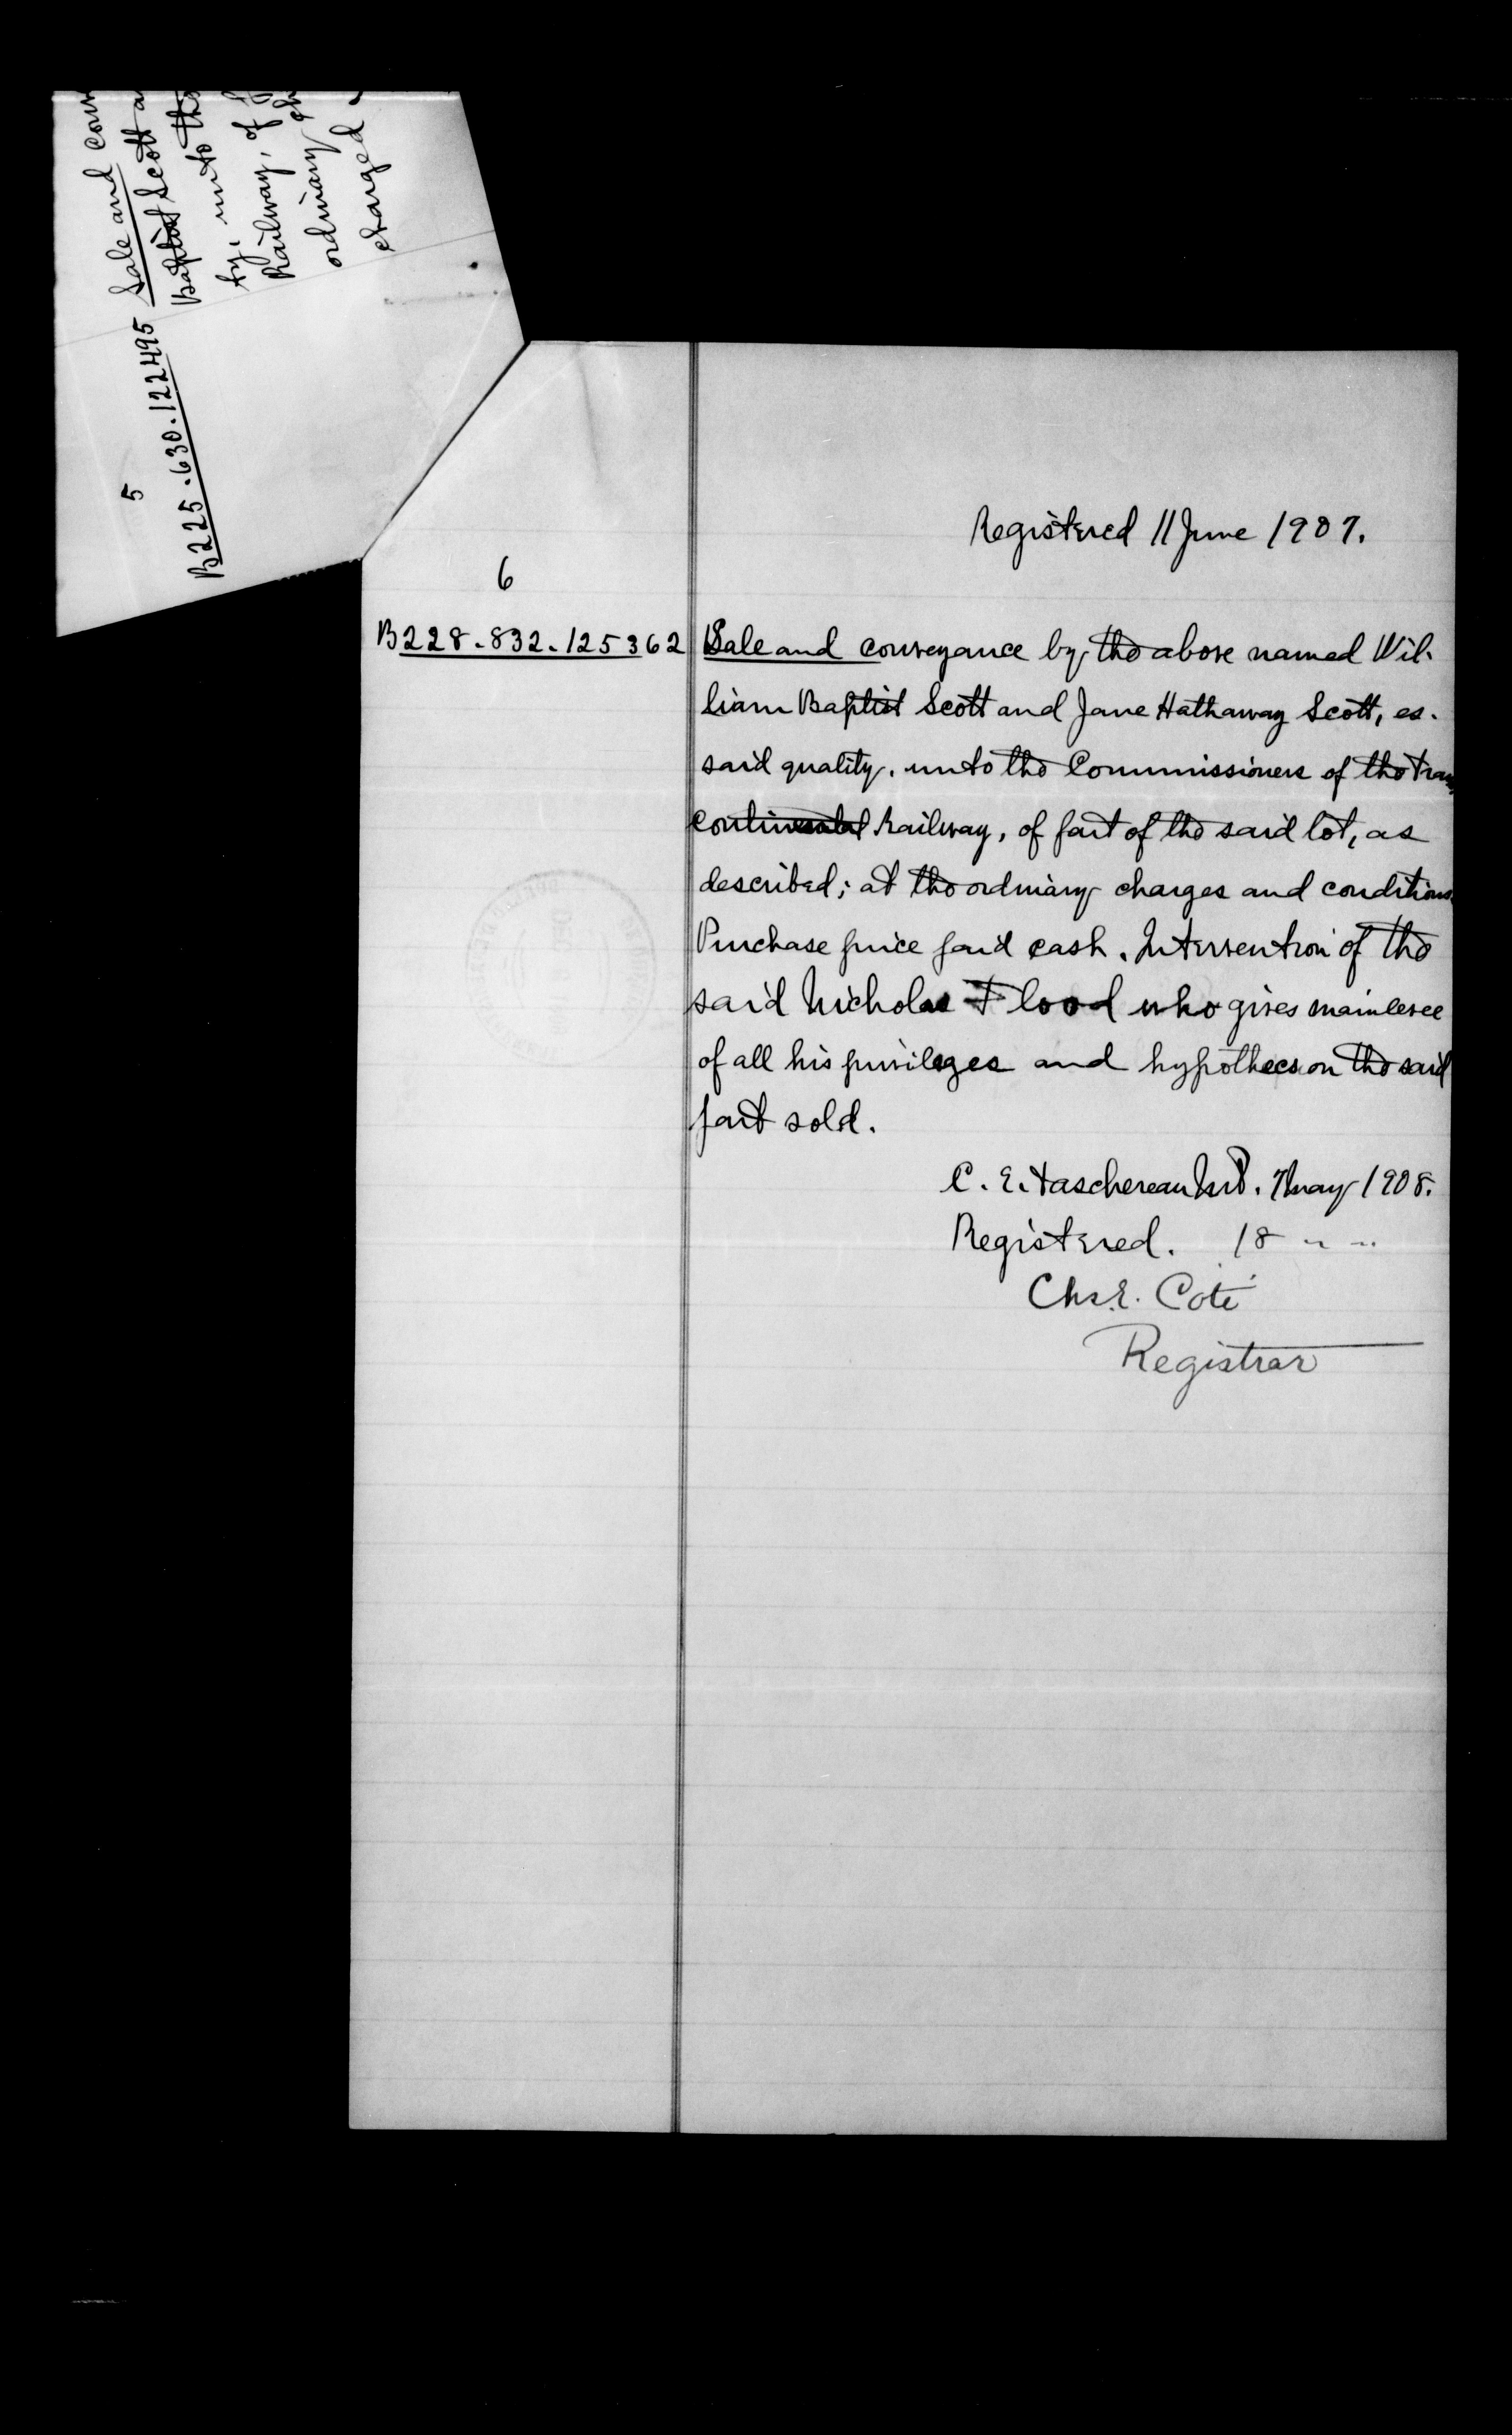 5
B225.630.122495
Sale and con
Baptist Scott a
ty, unto the
Railway, of
ordinary ch
charged
Registered 11 June 1907.
6
B228.832.125362
Sale and conveyance by the above named Wil-
liam Baptist Scott and Jane Hathaway Scott, es-
said quality, unto the Commissioners of the Trans
continental Railway, of part of the said lot, as
described; at the ordinary charges and conditions
Purchase price paid cash. Intervention of the
said Nicholas Flood who gives mainlevee
of all his privileges and hypothecs on the said
part sold.
C. E. Taschereau N.P. 7 May 1908.
Registered. 18 " "
Chs. E. Coté
Registrar